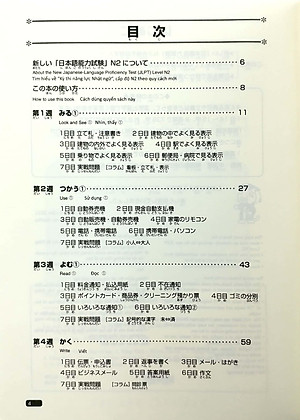 目次
新しい「日本語能力試験」N2について 6
About the New Japanese-Language Proficiency Test (JLPT) Level N2
Tìm hiểu về "Kỳ thi năng lực Nhật ngữ", cấp độ N2 theo quy cách mới
この本の使い方 8
How to use this book Cách dùng quyển sách này
第1週 みる① 11
Look and See ① Nhìn, thấy ①
1日目 立て札・注意書き 2日目 建物の中でよく見る表示
3日目 建物の内外でよく見る表示 4日目 駅でよく見る表示
5日目 乗り物でよく見る表示 6日目 郵便局・病院で見る表示
7日目 実戦問題 [コラム] 看板・立て札・掲示
第2週 つかう① 27
Use ① Sử dụng ①
1日目 自動券売機 2日目 現金自動支払機
3日目 自動販売機・自動券売機 4日目 家電のリモコン
5日目 電話・携帯電話 6日目 携帯電話・パソコン
7日目 実戦問題 [コラム] 小人⇔大人
第3週 よむ① 43
Read ① Đọc ①
1日目 料金通知・払込用紙 2日目 不在通知
3日目 ポイントカード・商品券・クリーニング預かり票 4日目 ゴミの分別
5日目 いろいろな通知① 6日目 いろいろな通知②
7日目 実戦問題 [コラム] 記号的な漢字
第4週 かく 59
Write Viết
1日目 伝票・申込書 2日目 返事を書く 3日目 メール・はがき
4日目 ビジネスメール 5日目 答案用紙 6日目 作文
7日目 実戦問題 [コラム] 問診票
4